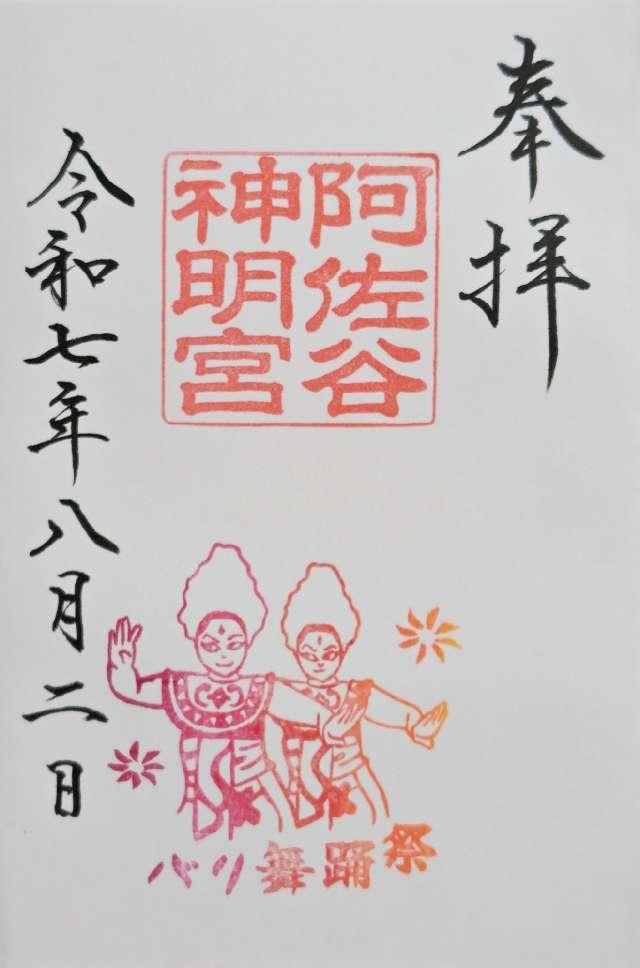 奉拝
阿佐谷
神明宮
令和七年八月二日
バリ舞踊祭